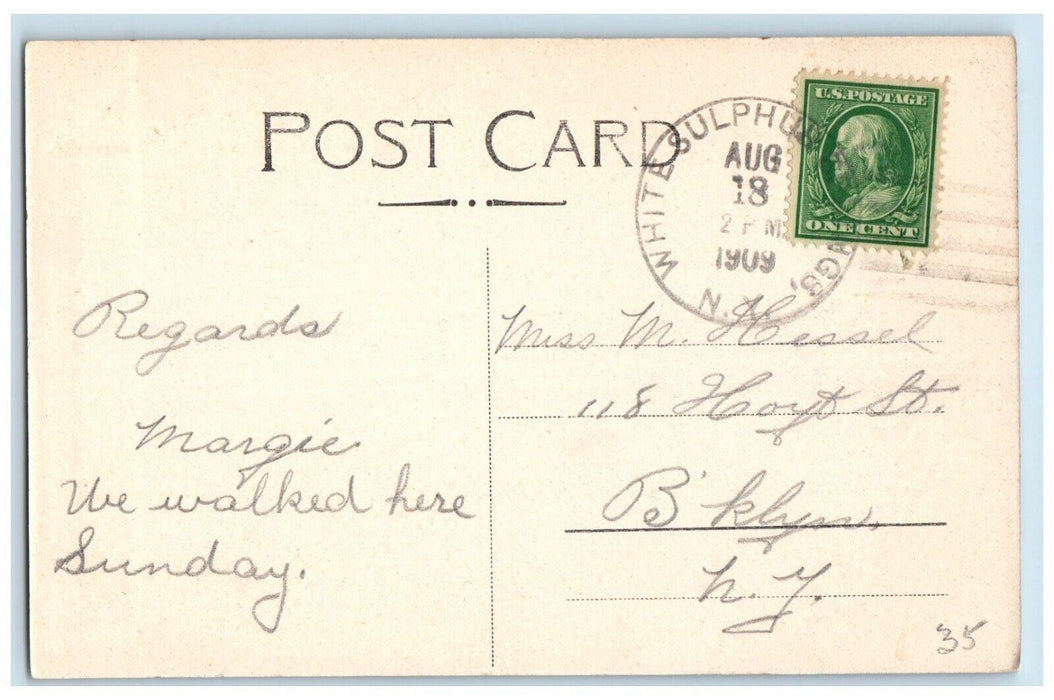 POST CARD
U.S. POSTAGE
ONE CENT
WHITE SULPHUR
N.
AUG
18
2 PM
1909
Regards
Margie
We walked here
Sunday.
Miss M. Hessel
118 Hoyt St.
B'klyn,
N.Y.
35